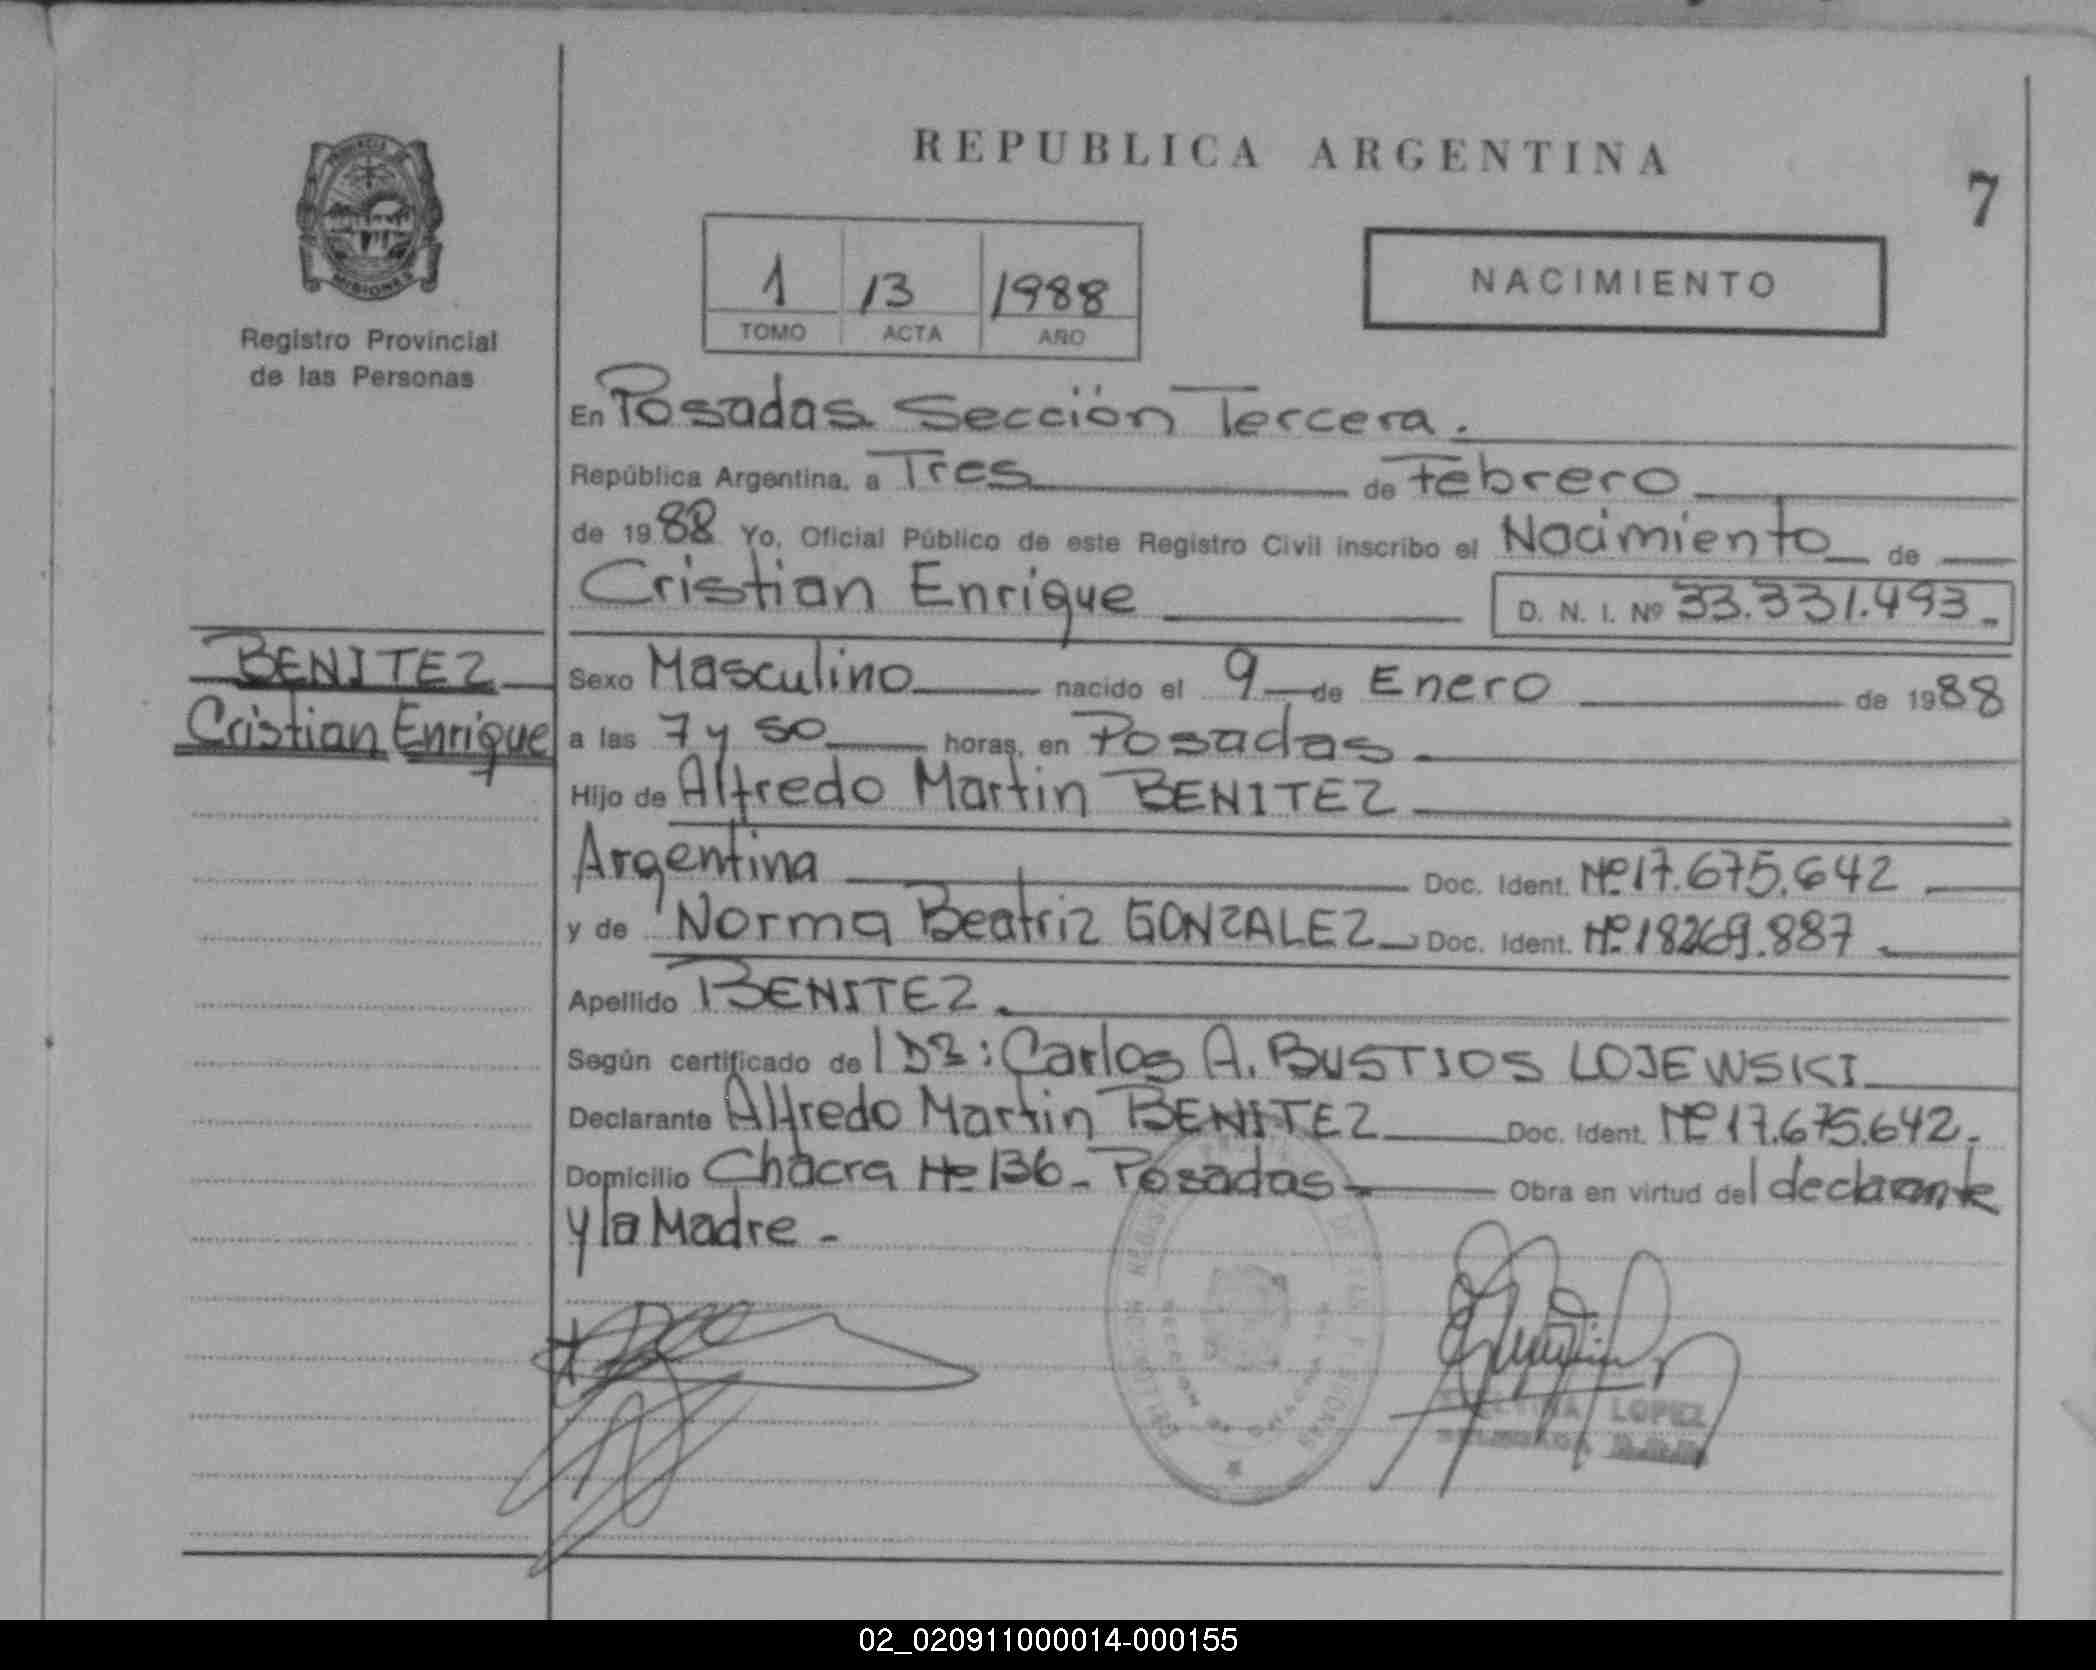 REPUBLICA ARGENTINA
7
PROVINCIA DE
MISIONES
Registro Provincial
de las Personas
1 13 1988
TOMO ACTA AÑO
NACIMIENTO
En Posadas Sección Tercera.
República Argentina, a Tres de Febrero
de 1988 Yo, Oficial Público de este Registro Civil inscribo el Nacimiento de
Cristian Enrique D. N. I. Nº 33.331.493.-
BENITEZ
Cristian Enrique
Sexo Masculino nacido el 9 de Enero de 1988
a las 7 y 50 horas, en Posadas
Hijo de Alfredo Martin BENITEZ
Argentina Doc. Ident. Nº 17.675.642
y de Norma Beatriz GONZALEZ Doc. Ident. Nº 18269.887
Apellido BENITEZ.
Según certificado de Carlos A. BUSTIOS LOJEWSKI
Declarante Alfredo Martin BENITEZ Doc. Ident. Nº 17.675.642.
Domicilio Chacra Nº 136 - Posadas Obra en virtud del declarante
y la Madre -
LOPEZ
02_020911000014-000155